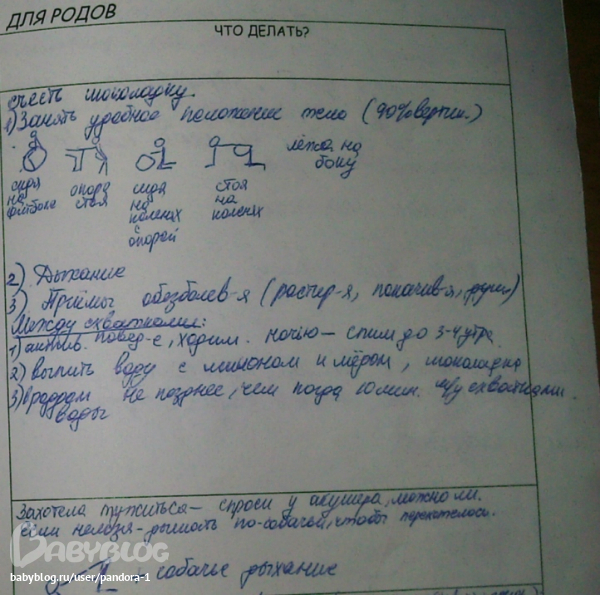 ДЛЯ РОДОВ
ЧТО ДЕЛАТЬ?
съесть шоколадку.
1) Занять удобное положение тела (90% вертик.)
сидя на фитболе
опора стоя
сидя на коленях с опорой
стоя на коленях
лёжа на боку
2) Дыхание
3) Приёмы обезболив-я (растир-я, покачив-я, )
Между схватками:
1) актив. повед-е, ходим. ночью — спим до 3-4 утра
2) выпить воду с лимоном и мёдом, шоколадка
3) в роддом не позднее, чем когда 10 мин. м/у схватками.
воды
Захотела тужиться — спроси у акушера, можно ли.
если нельзя - дышать по-собачьи, чтобы перехотелось.
BABYBLOG
babyblog.ru/user/pandora-1
+ собачье дыхание